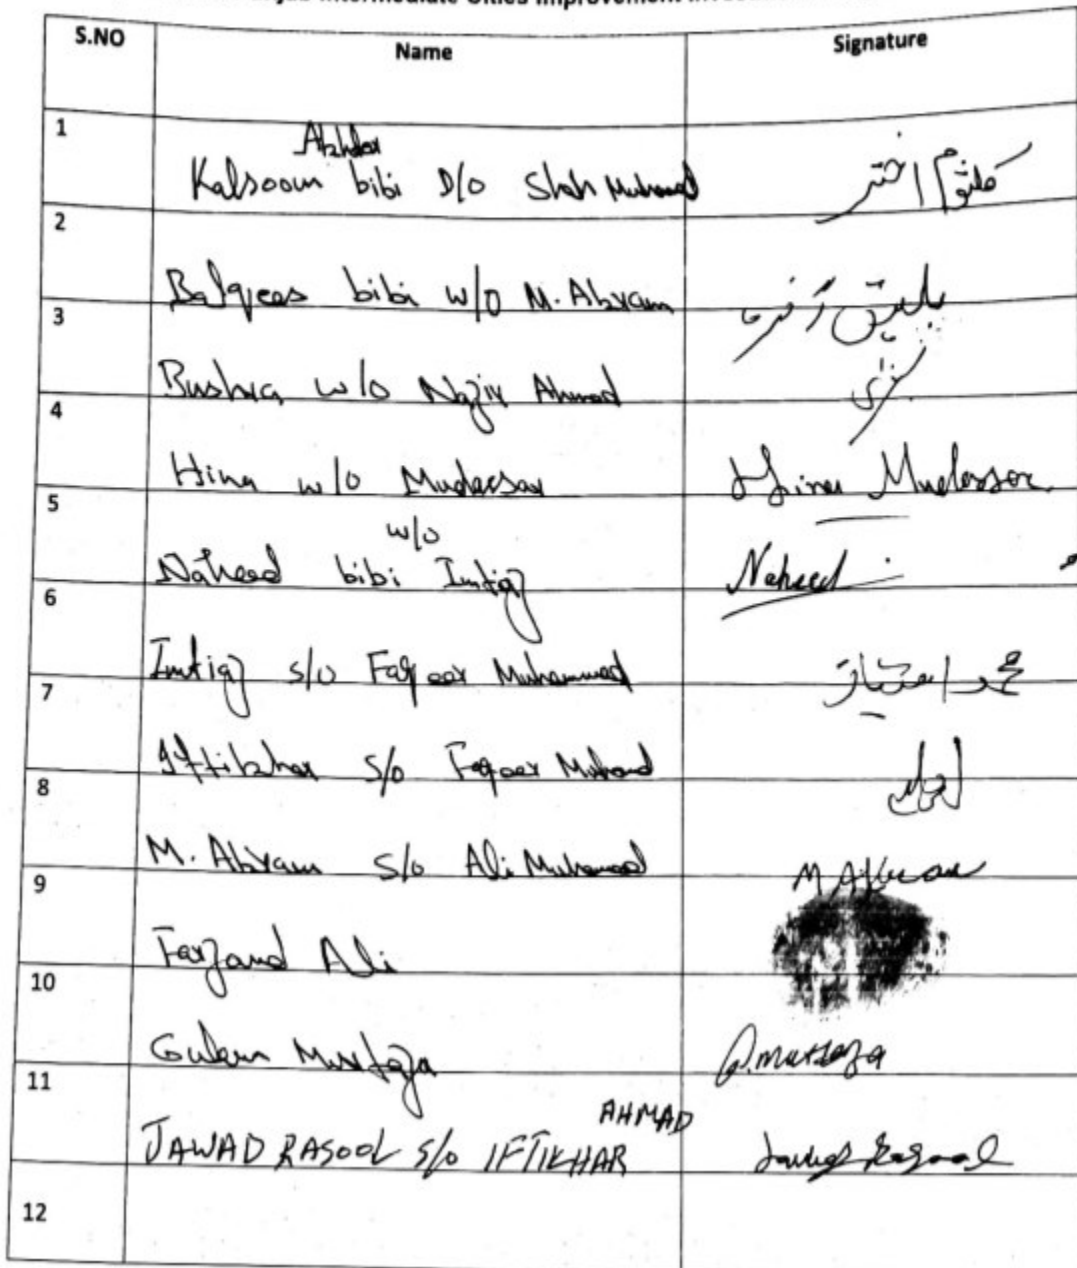 Intermediate Cities Improvement
S.NO Name Signature
1
Akhtar
Kalsoom bibi D/o Shah Muhammad کلثوم اختر
2
Balqees bibi w/o M. Akram
3
Bushra w/o Nazir Ahmad بشریٰ
4
Hina w/o Mudassar Hina Mudassar
5
w/o
Naheed bibi Imtiaz Naheed
6
Imtiaz s/o Faqeer Muhammad محمد امتیاز
7
Iftikhar s/o Faqeer Muhammad
8
M. Akram s/o Ali Muhammad M Akram
9
Farzand Ali
10
Gulam Murtaza G. murtaza
11
AHMAD
JAWAD RASOOL S/o IFTIKHAR Jawad Rasool
12